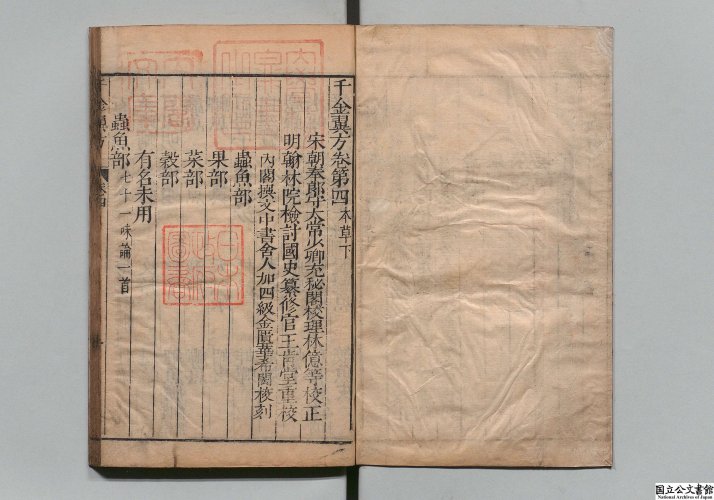 千金翼方卷第四 本草下
宋朝奉郎守太常少卿充秘閣校理林億等校正
明翰林院檢討國史纂修官王肯堂重校
內閣撰文中書舍人加四級金匱華希閎校刻
蟲魚部
果部
菜部
穀部
有名未用
蟲魚部 七十一味論一首
千金翼方 卷四
国立公文書館
National Archives of Japan